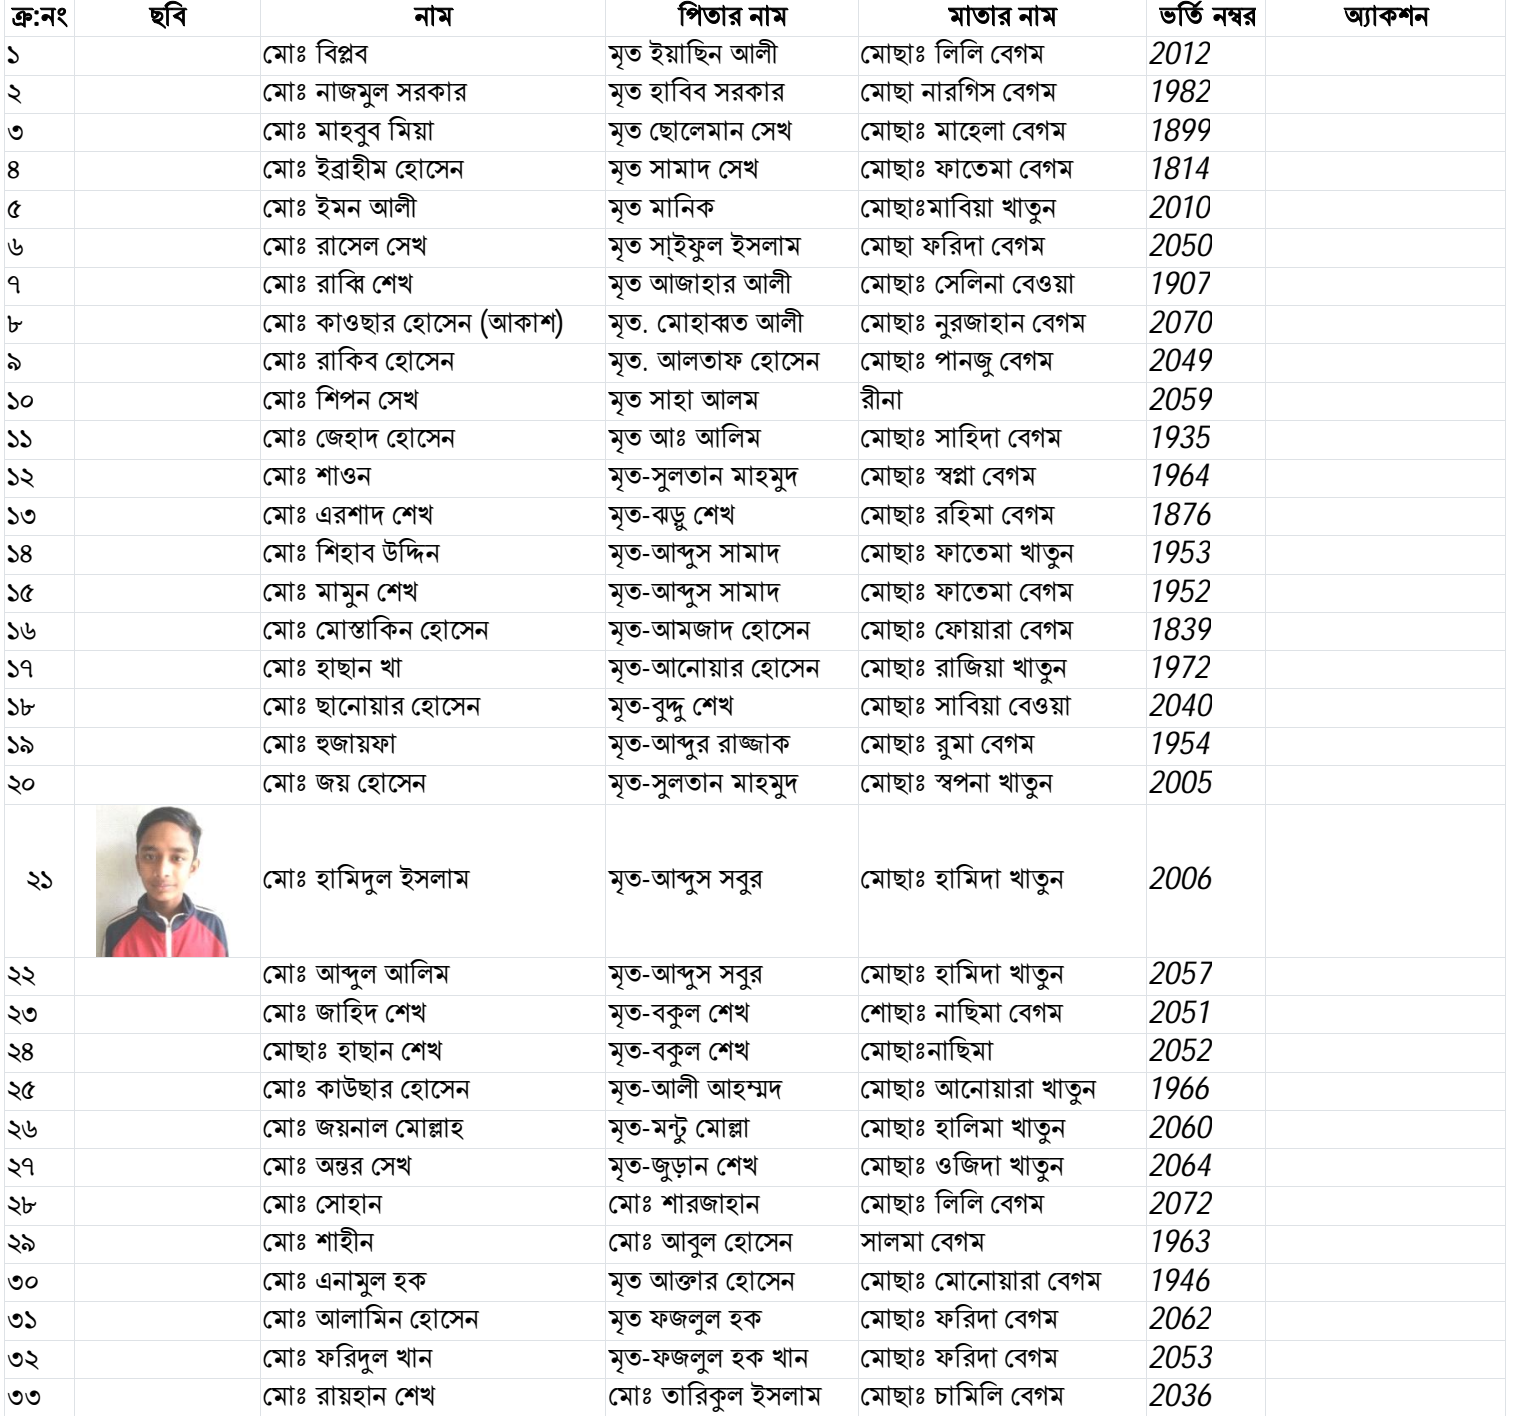 ক্র:নং ছবি নাম পিতার নাম মাতার নাম ভর্তি নম্বর অ্যাকশন
১ মোঃ বিপ্লব মৃত ইয়াছিন আলী মোছাঃ লিলি বেগম 2012
২ মোঃ নাজমুল সরকার মৃত হাবিব সরকার মোছা নারগিস বেগম 1982
৩ মোঃ মাহবুব মিয়া মৃত ছোলেমান সেখ মোছাঃ মাহেলা বেগম 1899
৪ মোঃ ইব্রাহীম হোসেন মৃত সামাদ সেখ মোছাঃ ফাতেমা বেগম 1814
৫ মোঃ ইমন আলী মৃত মানিক মোছাঃমাবিয়া খাতুন 2010
৬ মোঃ রাসেল সেখ মৃত সা্ইফুল ইসলাম মোছা ফরিদা বেগম 2050
৭ মোঃ রাব্বি শেখ মৃত আজাহার আলী মোছাঃ সেলিনা বেওয়া 1907
৮ মোঃ কাওছার হোসেন (আকাশ) মৃত. মোহাব্বত আলী মোছাঃ নুরজাহান বেগম 2070
৯ মোঃ রাকিব হোসেন মৃত. আলতাফ হোসেন মোছাঃ পানজু বেগম 2049
১০ মোঃ শিপন সেখ মৃত সাহা আলম রীনা 2059
১১ মোঃ জেহাদ হোসেন মৃত আঃ আলিম মোছাঃ সাহিদা বেগম 1935
১২ মোঃ শাওন মৃত-সুলতান মাহমুদ মোছাঃ স্বপ্না বেগম 1964
১৩ মোঃ এরশাদ শেখ মৃত-ঝড়ু শেখ মোছাঃ রহিমা বেগম 1876
১৪ মোঃ শিহাব উদ্দিন মৃত-আব্দুস সামাদ মোছাঃ ফাতেমা খাতুন 1953
১৫ মোঃ মামুন শেখ মৃত-আব্দুস সামাদ মোছাঃ ফাতেমা বেগম 1952
১৬ মোঃ মোস্তাকিন হোসেন মৃত-আমজাদ হোসেন মোছাঃ ফোয়ারা বেগম 1839
১৭ মোঃ হাছান খা মৃত-আনোয়ার হোসেন মোছাঃ রাজিয়া খাতুন 1972
১৮ মোঃ ছানোয়ার হোসেন মৃত-বুদ্দু শেখ মোছাঃ সাবিয়া বেওয়া 2040
১৯ মোঃ হুজায়ফা মৃত-আব্দুর রাজ্জাক মোছাঃ রুমা বেগম 1954
২০ মোঃ জয় হোসেন মৃত-সুলতান মাহমুদ মোছাঃ স্বপনা খাতুন 2005
২১ মোঃ হামিদুল ইসলাম মৃত-আব্দুস সবুর মোছাঃ হামিদা খাতুন 2006
২২ মোঃ আব্দুল আলিম মৃত-আব্দুস সবুর মোছাঃ হামিদা খাতুন 2057
২৩ মোঃ জাহিদ শেখ মৃত-বকুল শেখ শোছাঃ নাছিমা বেগম 2051
২৪ মোছাঃ হাছান শেখ মৃত-বকুল শেখ মোছাঃনাছিমা 2052
২৫ মোঃ কাউছার হোসেন মৃত-আলী আহম্মদ মোছাঃ আনোয়ারা খাতুন 1966
২৬ মোঃ জয়নাল মোল্লাহ মৃত-মন্টু মোল্লা মোছাঃ হালিমা খাতুন 2060
২৭ মোঃ অন্তর সেখ মৃত-জুড়ান শেখ মোছাঃ ওজিদা খাতুন 2064
২৮ মোঃ সোহান মোঃ শারজাহান মোছাঃ লিলি বেগম 2072
২৯ মোঃ শাহীন মোঃ আবুল হোসেন সালমা বেগম 1963
৩০ মোঃ এনামুল হক মৃত আক্তার হোসেন মোছাঃ মোনোয়ারা বেগম 1946
৩১ মোঃ আলামিন হোসেন মৃত ফজলুল হক মোছাঃ ফরিদা বেগম 2062
৩২ মোঃ ফরিদুল খান মৃত-ফজলুল হক খান মোছাঃ ফরিদা বেগম 2053
৩৩ মোঃ রায়হান শেখ মোঃ তারিকুল ইসলাম মোছাঃ চামিলি বেগম 2036